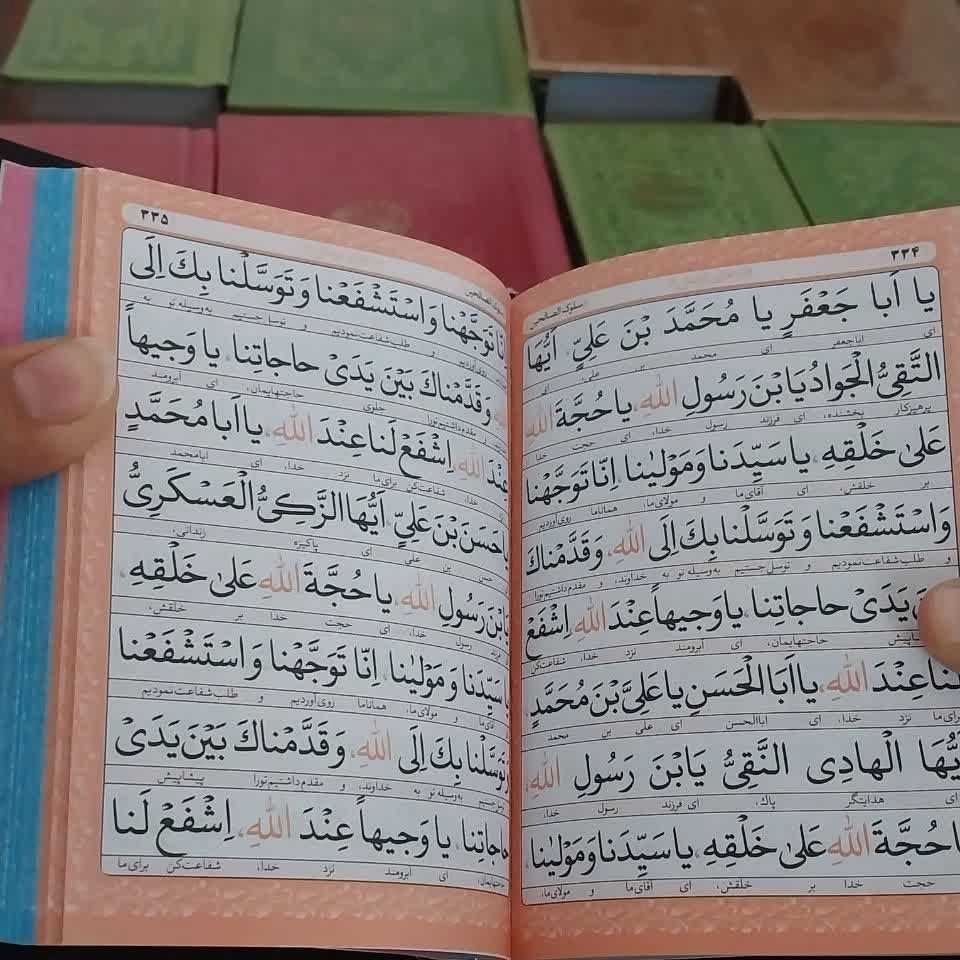 ۳۳۴
سلوک الصالحین
یا اَبا جَعْفَرٍ یا مُحَمَّدَ بْنَ عَلِیٍّ، اَیُّهَا
ای اباجعفر ای محمد بن علی، ای
التَّقِیُّ الْجَوادُ یَا بْنَ رَسُولِ اللهِ، یا حُجَّةَ اللهِ
پرهیزکار بخشنده، ای فرزند رسول خدا، ای حجت خدا
عَلیٰ خَلْقِهِ، یا سَیِّدَنا وَ مَوْلیٰنا، اِنّا تَوَجَّهْنا
بر خلقش، ای آقای‌ما و مولای‌ما، همانا‌ما روی‌آوردیم
وَ اسْتَشْفَعْنا وَ تَوَسَّلْنا بِکَ اِلَی اللهِ، وَ قَدَّمْناکَ
و طلب شفاعت نمودیم و توسل جستیم به‌وسیله تو به خداوند، و مقدم داشتیم تورا
بَیْنَ یَدَیْ حاجاتِنا، یا وَجیهاً عِنْدَ اللهِ، اِشْفَعْ
پیشاپیش حاجتهایمان، ای آبرومند نزد خدا، شفاعت‌کن
لَنا عِنْدَ اللهِ، یا اَبَا الْحَسَنِ یا عَلِیَّ بْنَ مُحَمَّدٍ،
برای‌ما نزد خدا، ای اباالحسن ای علی بن محمد
اَیُّهَا الْهادِی النَّقِیُّ یَا بْنَ رَسُولِ اللهِ،
ای هدایتگر پاک، ای فرزند رسول خدا،
یا حُجَّةَ اللهِ عَلیٰ خَلْقِهِ، یا سَیِّدَنا وَ مَوْلیٰنا،
حجت خدا بر خلقش، ای آقای‌ما و مولای‌ما،
۳۳۵
سلوک الصالحین
اِنّا تَوَجَّهْنا وَ اسْتَشْفَعْنا وَ تَوَسَّلْنا بِکَ اِلَی
روی‌آوردیم و طلب شفاعت نمودیم و توسل جستیم به‌وسیله تو به
اللهِ، وَ قَدَّمْناکَ بَیْنَ یَدَیْ حاجاتِنا، یا وَجیهاً
و مقدم داشتیم تورا جلوی حاجتهایمان، ای آبرومند
عِنْدَ اللهِ، اِشْفَعْ لَنا عِنْدَ اللهِ، یا اَبا مُحَمَّدٍ
خدا، شفاعت‌کن برای‌ما نزد خدا، ای ابامحمد
یا حَسَنَ بْنَ عَلِیٍّ، اَیُّهَا الزَّکِیُّ الْعَسْکَرِیُّ
حسن بن علی ای پاکیزه زندانی،
یَا بْنَ رَسُولِ اللهِ، یا حُجَّةَ اللهِ عَلیٰ خَلْقِهِ،
فرزند رسول خدا، ای حجت خدا بر خلقش،
یا سَیِّدَنا وَ مَوْلیٰنا، اِنّا تَوَجَّهْنا وَ اسْتَشْفَعْنا
آقای‌ما و مولای‌ما، همانا‌ما روی‌آوردیم و طلب شفاعت نمودیم
وَ تَوَسَّلْنا بِکَ اِلَی اللهِ، وَ قَدَّمْناکَ بَیْنَ یَدَیْ
توسل جستیم به‌وسیله تو به خداوند، و مقدم داشتیم تورا پیشاپیش
حاجاتِنا، یا وَجیهاً عِنْدَ اللهِ، اِشْفَعْ لَنا
حاجتهایمان، ای آبرومند نزد خدا، شفاعت‌کن برای‌ما